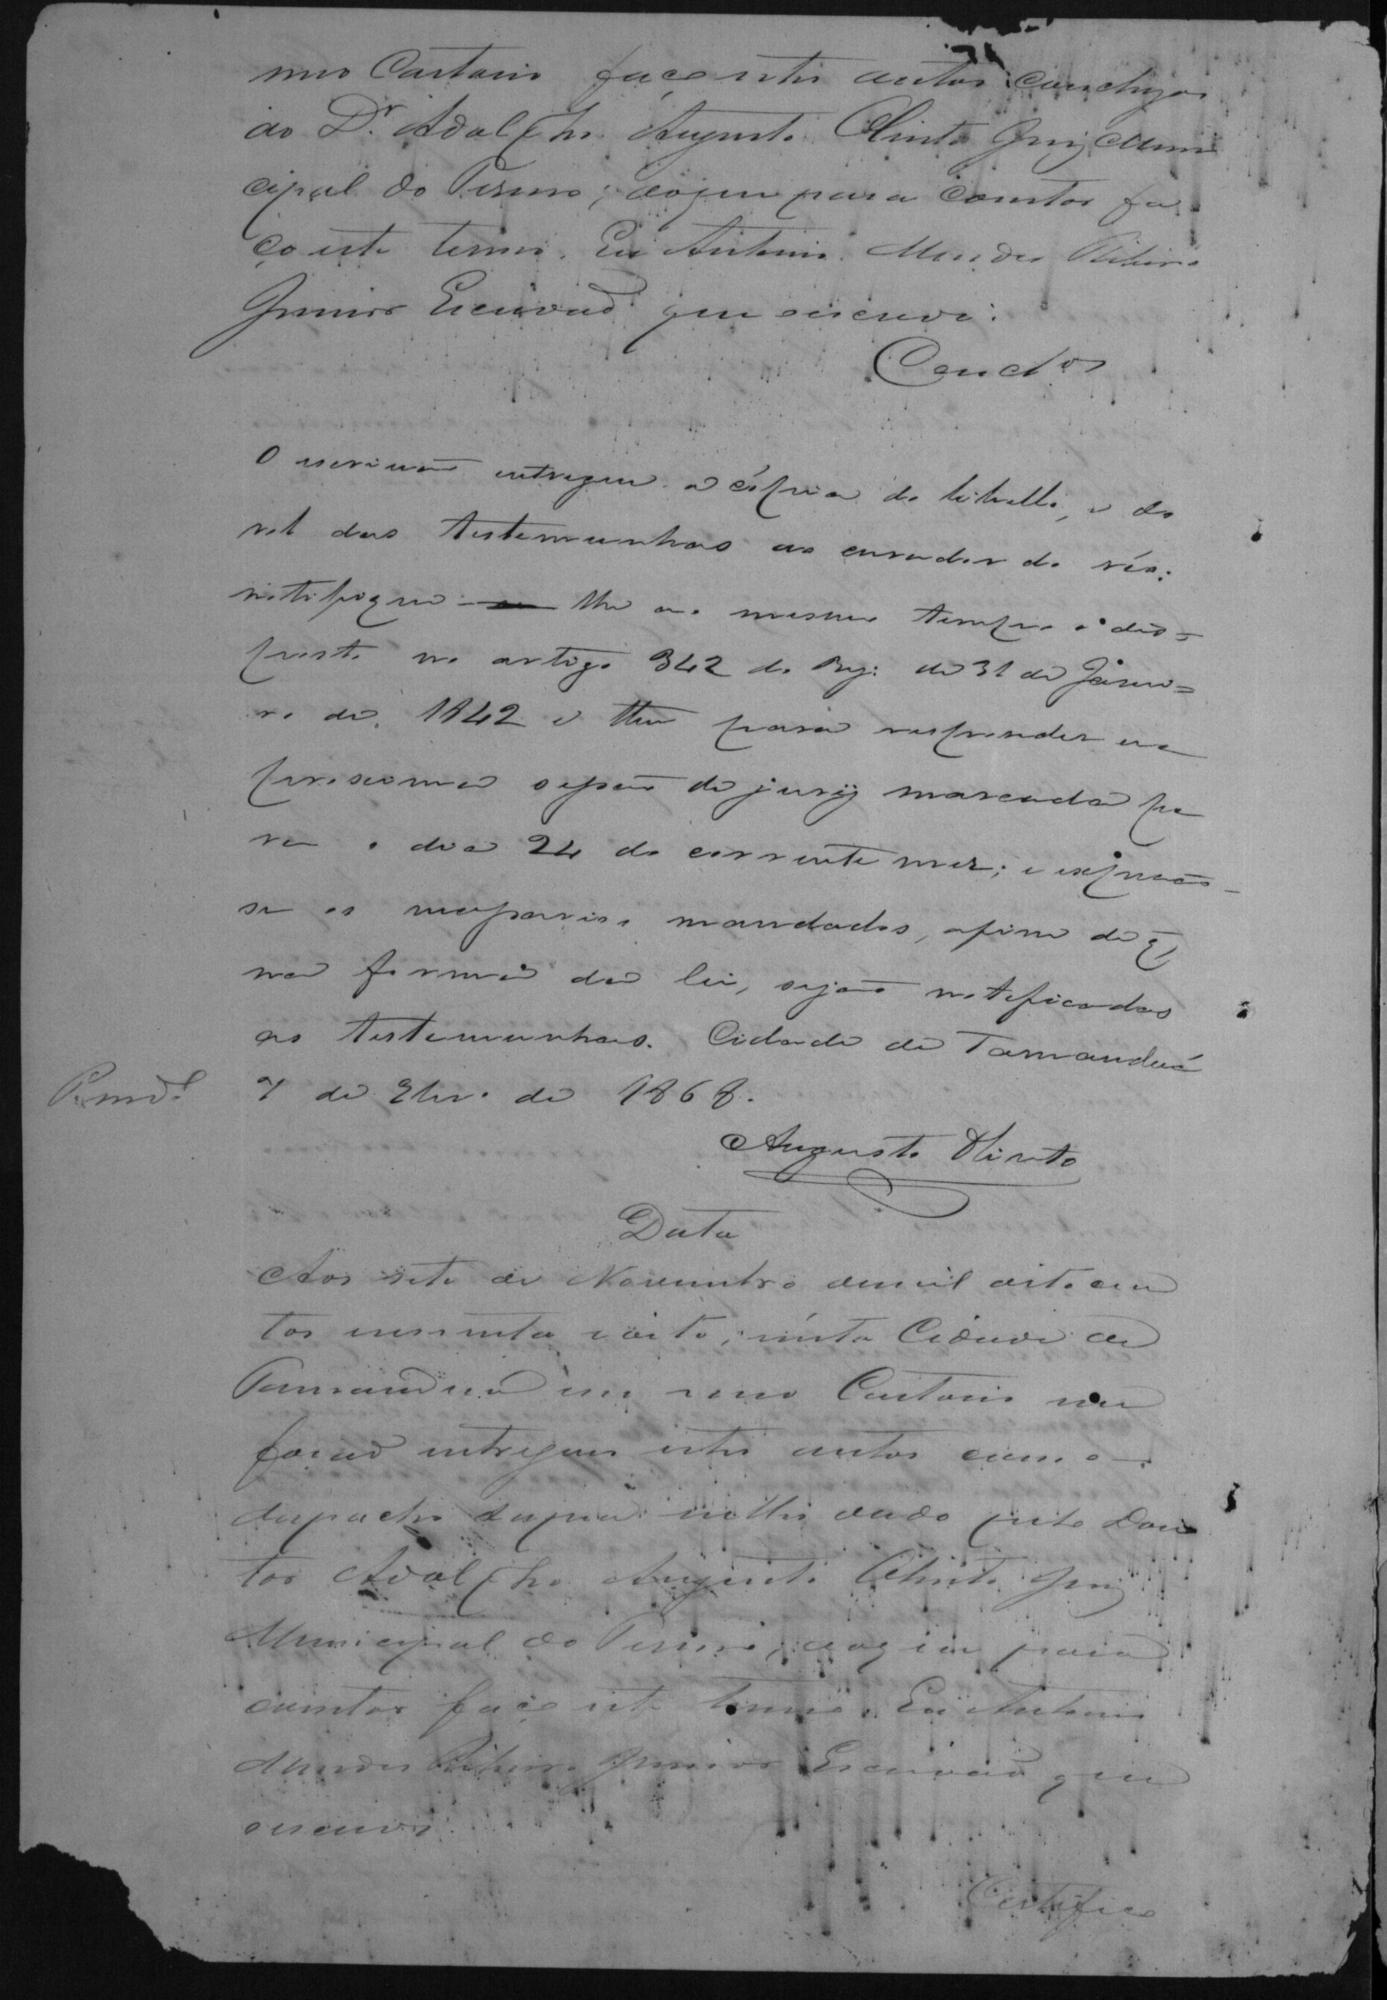 meu Cartorio faço estes autos conclusos
ao Dr. Adolpho Augusto Olinto Juiz Muni
cipal do Termo; do que para constar fa
ço este termo. Eu Antonio Mendes Ribeiro
Junior Escrivaõ que escrevi.
Concl.os
O escrivaõ entregue a cópia do libello, e do
rol das testemunhas ao curador do réo;
notifique-lhe ao mesmo tempo o dis=
posto no artigo 342 do Reg: de 31 de Janei=
ro de 1842 e lhe para responder na
proxima sessaõ do jury marcada pa
ra o dia 24 do corrente mez; e expeçaõ-
se os necessarios mandados, afim de q̃
na forma da lei, sejaõ notificadas
as testemunhas. Cidade de Tamanduá
7 de 9br.o de 1868.
Augusto Olinto
Data
Aos sete de Novembro de mil oito cen
tos sessenta e oito, n'esta Cidade de
Tamanduá em meu Cartorio me
foraõ entregues estes autos com o
despacho supra n'elles dado pelo Dou
tor Adolpho Augusto Olinto Juiz
Municipal do Termo; do que para
constar faço este termo. Eu Antonio
Mendes Ribeiro Junior Escrivaõ que
escrevi.
Certifico